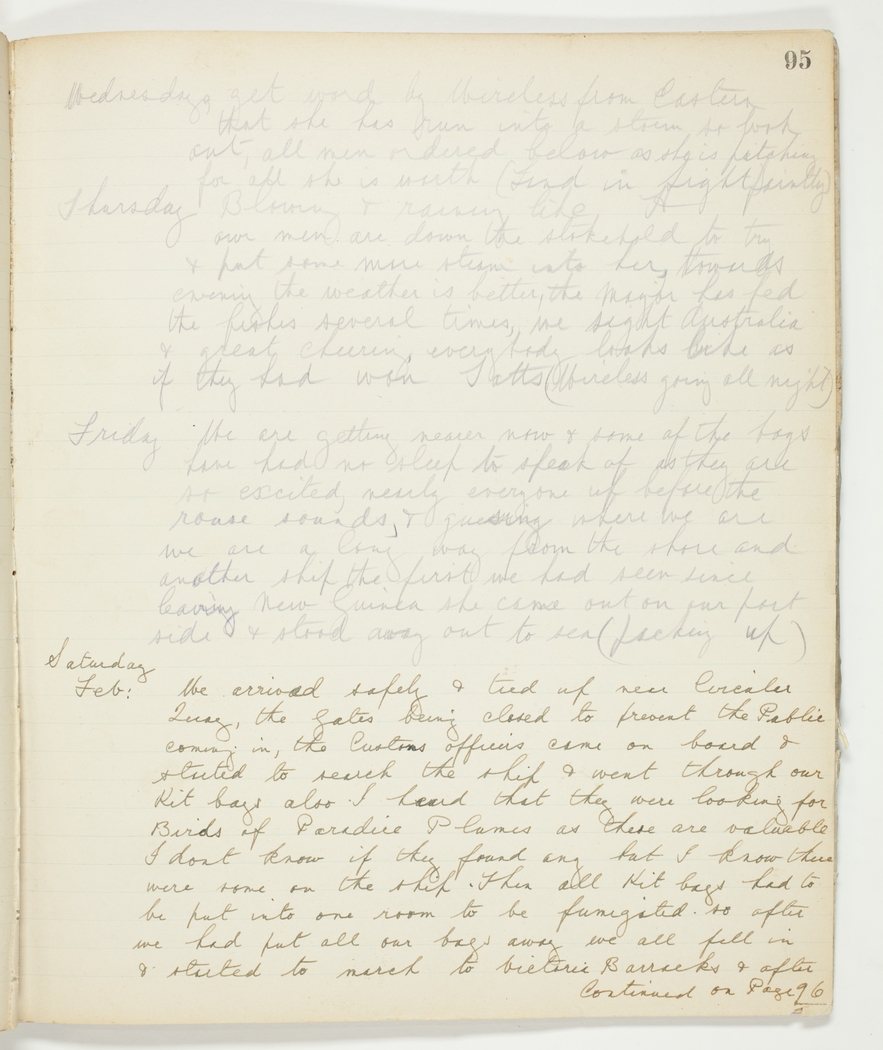 95
Wednesday, get word by Wireless from Eastern
that she has run into a storm so look
out, all men ordered below as she is pitching
for all she is worth (Land in sight faintly)
Thursday Blowing & raining like H——
our men are down the stokehold to try
& put some more steam into her, towards
evening the weather is better, the Major has fed
the fishes several times, we sight Australia
& great cheering, everybody looks like as
if they had won Tatts (Wireless going all night)
Friday We are getting nearer now & some of the boys
have had no sleep to speak of as they are
so excited, nearly everyone up before the
rouse sounds, & guessing where we are
we are a long way from the shore and
another ship the first we had seen since
leaving New Guinea she came out on our port
side & stood away out to sea (packing up)
Saturday
Feb: We arrived safely & tied up near Circular
Quay, the gates being closed to prevent the Public
coming in, the Customs officers came on board &
started to search the ship & went through our
Kit bags also. I heard that they were looking for
Birds of Paradice Plumes as these are valuable
I dont know if they found any but I know there
were some on the ship. Then all Kit bags had to
be put into one room to be fumigated. so after
we had put all our bags away we all fell in
& started to march to Victoria Barracks & after
Continued on Page 96